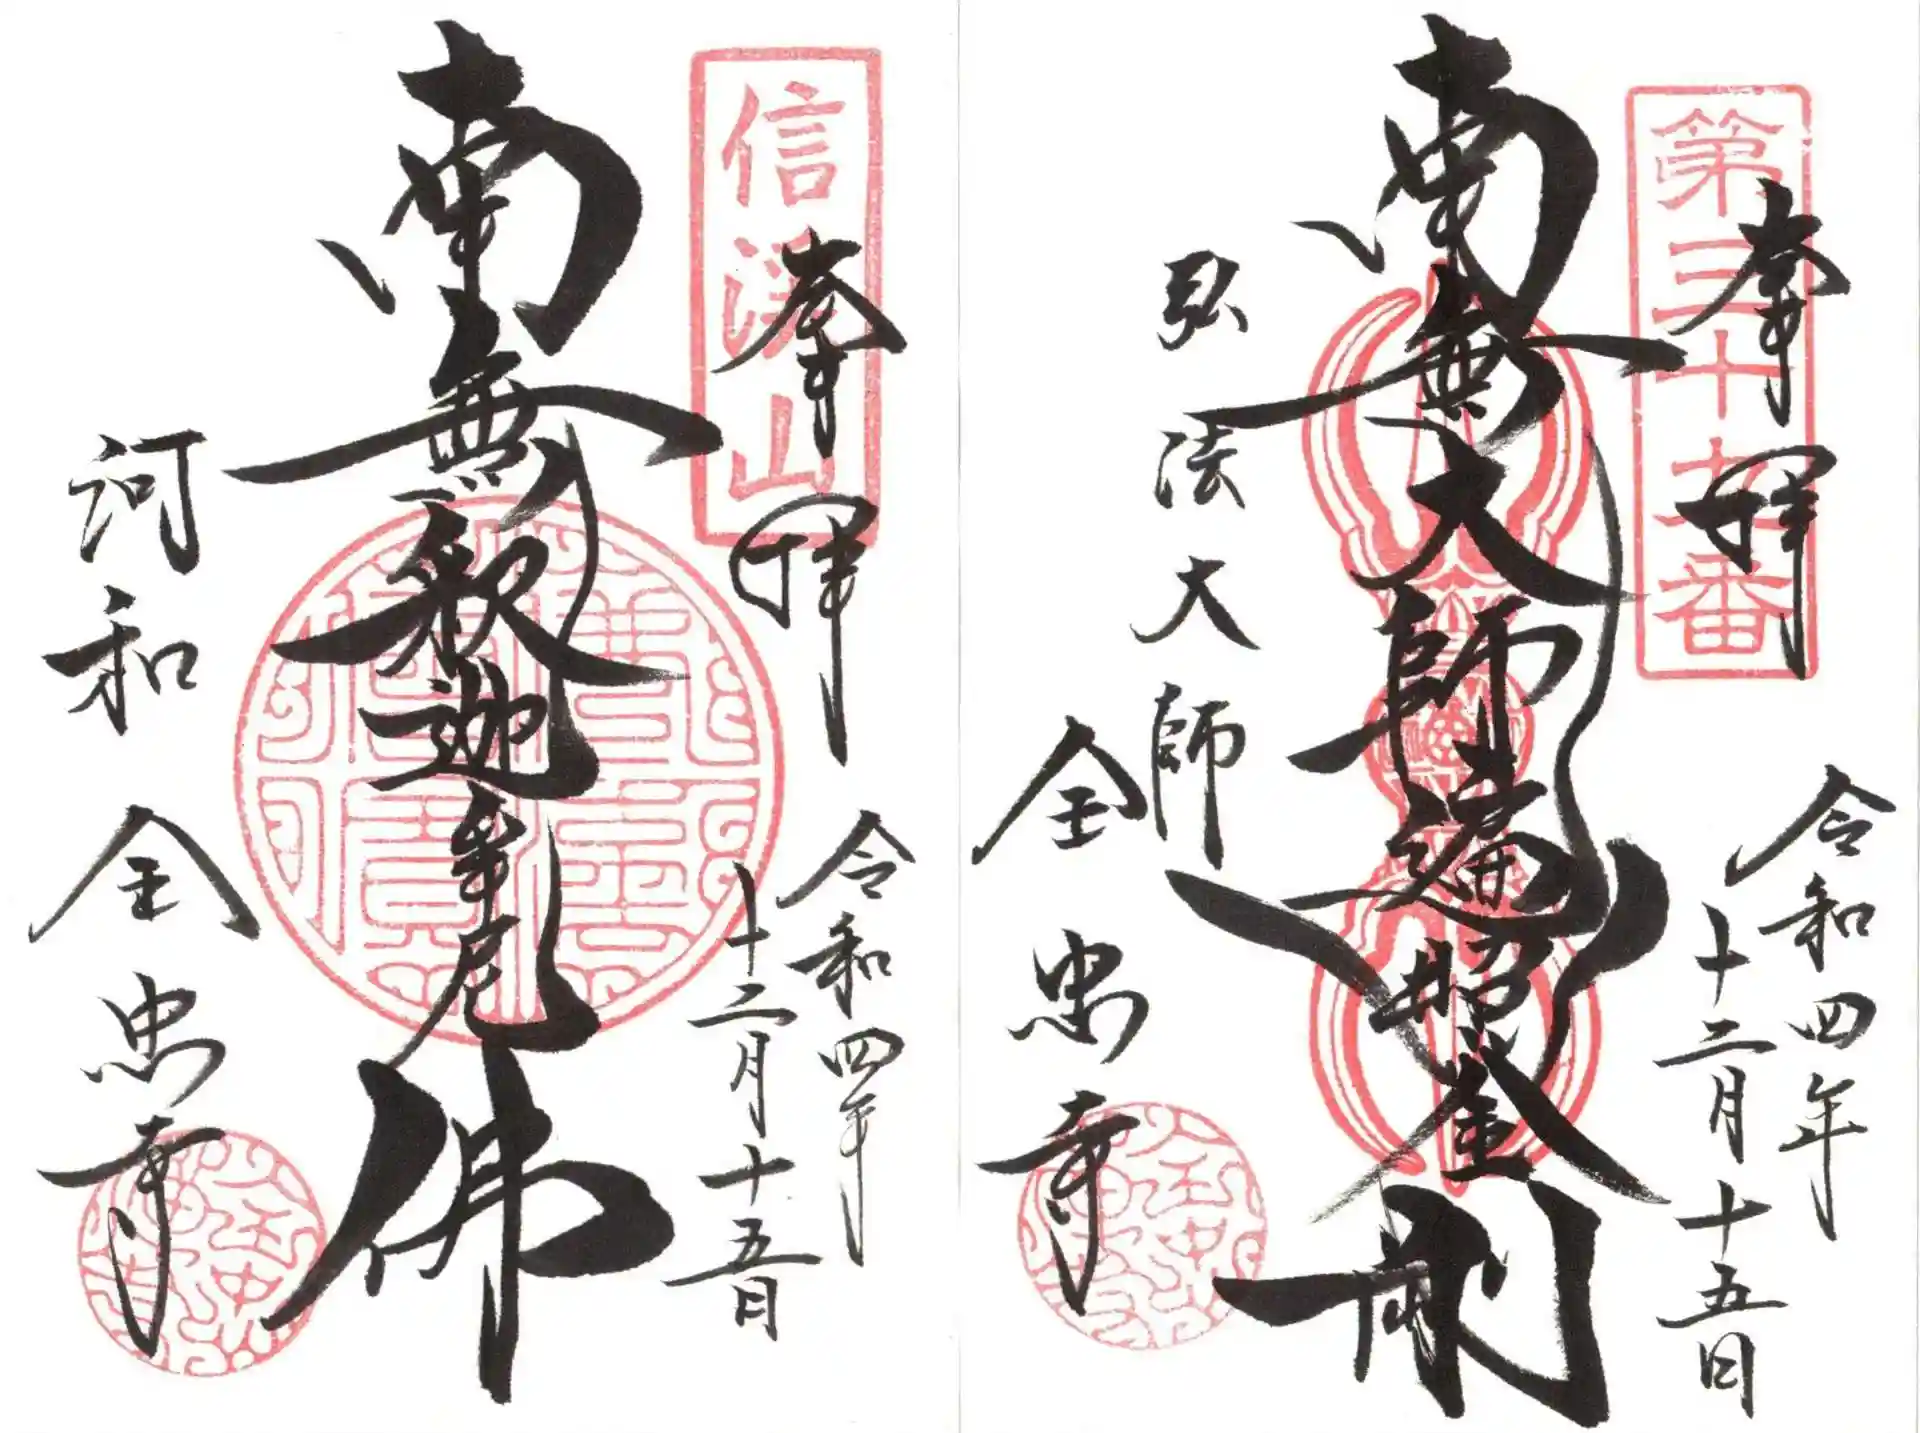 第三十九番
奉拝
令和四年
十二月十五日
南無大師遍照金剛
弘法大師
全忠寺
信渓山
奉拝
令和四年
十二月十五日
南無釈迦牟尼佛
河和 全忠寺